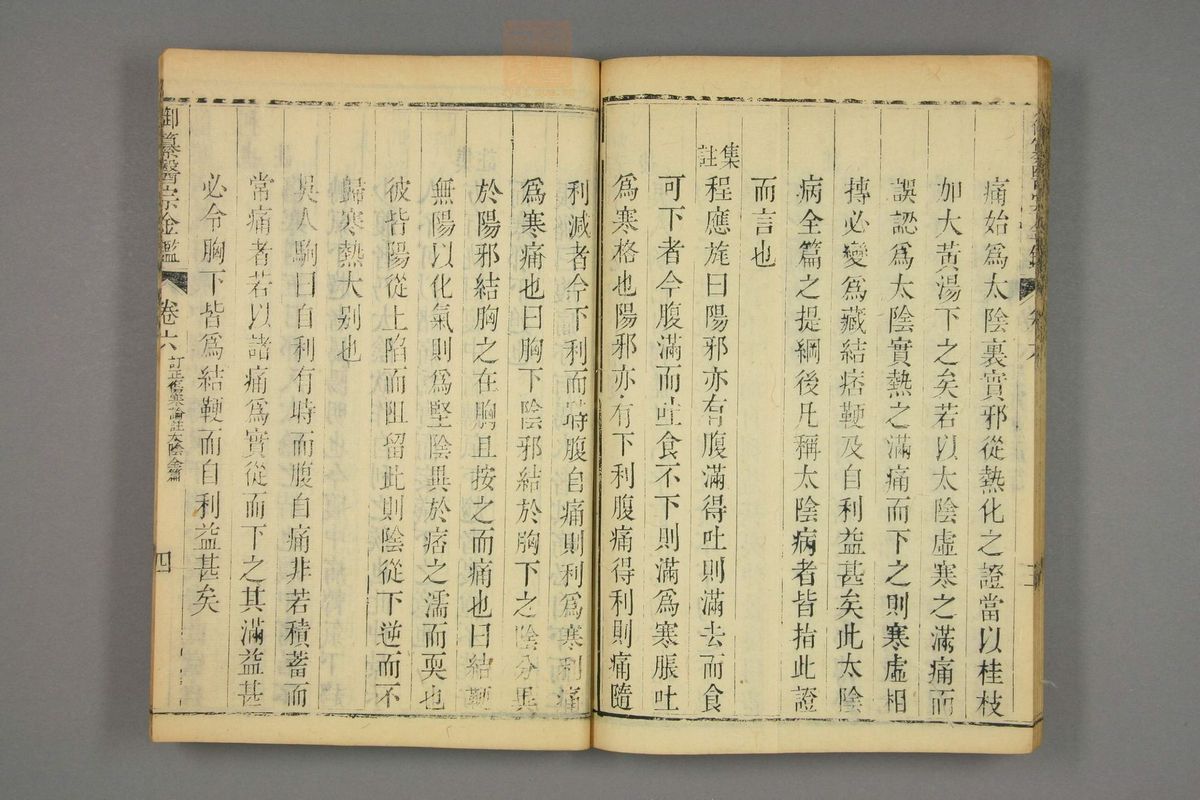 痛始爲太陰裏實邪從熱化之證當以桂枝
加大黃湯下之矣若以太陰虛寒之滿痛而
誤認爲太陰實熱之滿痛而下之則寒虛相
摶必變爲藏結痞鞕及自利益甚矣此太陰
病全篇之提綱後凡稱太陰病者皆指此證
而言也
集註
程應旄曰陽邪亦有腹滿得吐則滿去而食
可下者今腹滿而吐食不下則滿爲寒脹吐
爲寒格也陽邪亦有下利腹痛得利則痛隨
利減者今下利而時腹自痛則利爲寒利痛
爲寒痛也曰胸下陰邪結於胸下之陰分異
於陽邪結胸之在胸且按之而痛也曰結鞕
無陽以化氣則爲堅陰異於痞之濡而耎也
彼皆陽從上陷而阻留此則陰從下逆而不
歸寒熱大别也
吳人駒曰自利有時而腹自痛非若積蓄而
常痛者若以諸痛爲實從而下之其滿益甚
必令胸下皆爲結鞕而自利益甚矣
御纂醫宗金鑑
卷六
訂正傷寒論註太陰全篇
四